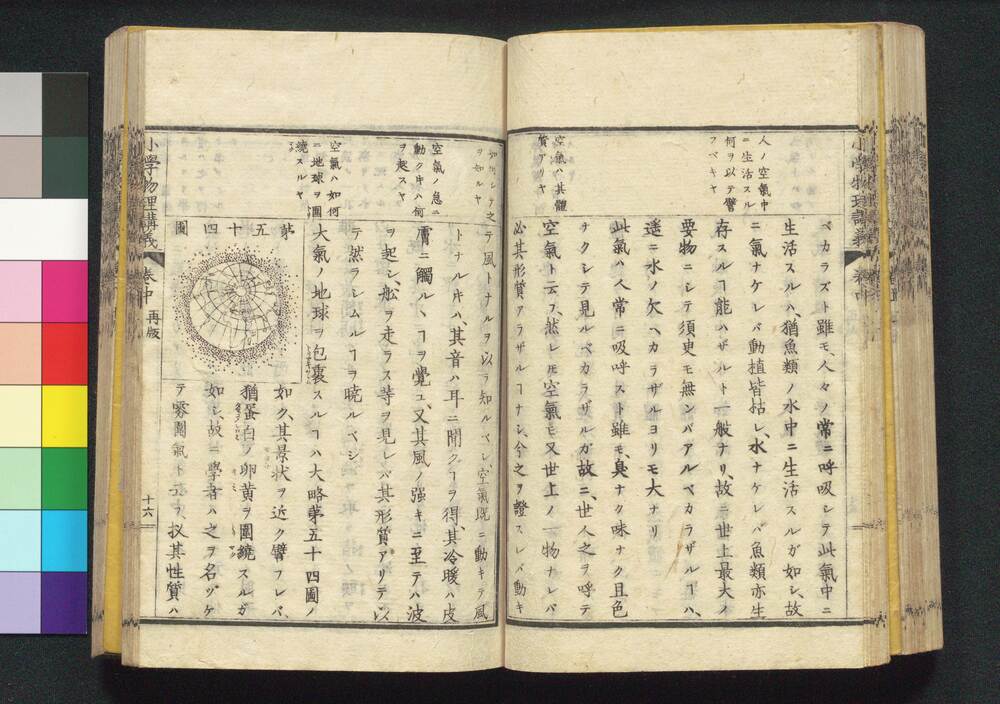 人ノ空氣中
ニ生活スル
何ヲ以テ譬
フベキヤ
空氣ハ其體
質アリヤ
ベカラズト雖モ、人々ノ常ニ呼吸シテ此氣中ニ
生活スルハ、猶魚類ノ水中ニ生活スルガ如シ、故
ニ氣ナケレバ動植皆枯レ、水ナケレバ魚類亦生
存スルヿ能ハザルト一般ナリ、故ニ世上最大ノ
要物ニシテ須臾モ無ンバアルベカラザルヿハ、
遥ニ水ノ欠ベカラザルヨリモ大ナリ
此氣ハ人常ニ呼吸スト雖モ、臭ナク味ナク且色
ナクシテ見ルベカラザルガ故ニ、世人之ヲ呼テ
空氣ト云フ、然レ𪜈空氣モ又世上ノ一物ナレバ
必其形質アラザルヿナシ、今之ヲ證スレバ動キ
如何シテ之
ヲ知ルヤ
空氣ノ急ニ
動クキハ何
ヲ起スヤ
空氣ハ如何
ニ地球ヲ圍
繞スルヤ
テ風トナルヲ以テ知ルベシ、空氣既ニ動キテ風
トナルキハ、其音ハ耳ニ聞クヿヲ得、其冷暖ハ皮
膚ニ觸ルヽヿヲ覺ユ、又其風ノ强キニ至テハ波
ヲ起シ、舩ヲ走ラス等ヲ見レバ其形質アリテ以
テ然ラシムルヿヲ暁ルベシ
大氣ノ地球ヲ包裹スルヿハ大略第五十四圖ノ
如ク、其景状ヲ近ク譬フレバ、
猶蛋白ノ卵黄ヲ圍繞スルガ
如シ、故ニ學者ハ之ヲ名ヅケ
テ雰圍氣ト云フ、扨其性質ハ
第五十四圖
小學物理講義
卷中
再版
十六